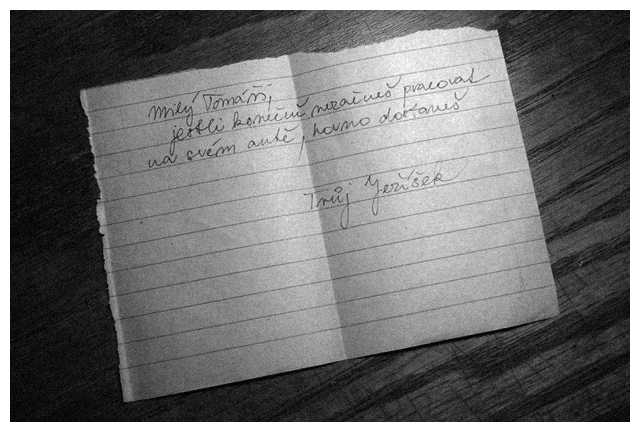 Milý Tomáši,
jestli konečně nezačneš pracovat
na svém autě, hovno dostaneš
Tvůj Ježíšek